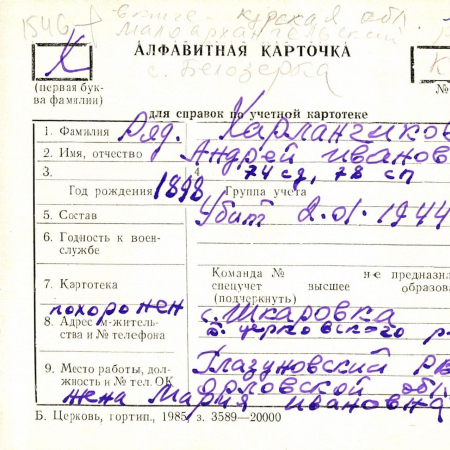 1546 – в книге - Курская обл.
Малоархангельский
с. Белозерка
АЛФАВИТНАЯ КАРТОЧКА
Х
К
(первая бук-
ва фамилии)
№
для справок по учетной картотеке
1. Фамилия Ряд. Харланчиков
2. Имя, отчество Андрей Иванов
3. 4 74 сд, 78 сп
Год рождения 1898 Группа учета
5. Состав Убит 2.01.1944
6. Годность к воен-
службе
Команда № не предназна
7. Картотека спецучет высшее образова
(подчеркнуть)
похоронен с. Шкаровка
8. Адрес м-житель-
ства и № телефона Б. Церковского р-
9. Место работы, дол-
жность и № тел. ОК Глазуновский РВ
Орловской обл.
жена Мария Ивановна
Б. Церковь, гортип., 1985, з. 3589—20000